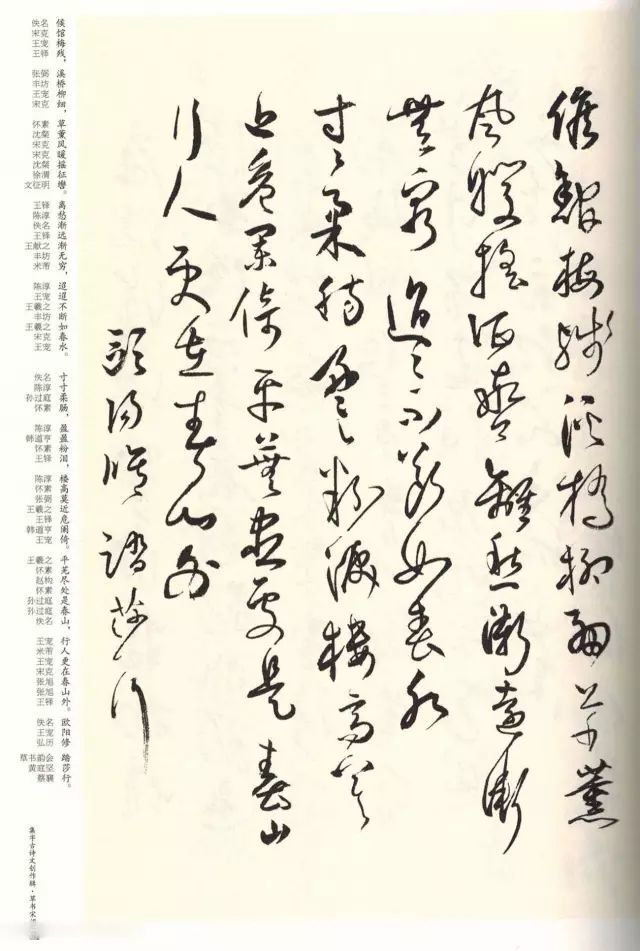 候館梅殘溪橋柳細草薰
風暖搖征轡離愁漸遠漸
無窮迢〻不斷如春水
寸〻柔腸盈〻粉淚樓高莫
近危闌倚平蕪盡處是春山
行人更在春山外
歐陽修踏莎行
候馆梅残，
佚名 宋克 王宠 王铎
溪桥柳细，
张弼 丰坊 王宠 宋克
草薰风暖摇征辔。
怀素 沈粲 宋克 宋克 沈粲 徐渭 文征明
离愁渐远渐无穷，
王铎 陈淳 佚名 王铎 王献之 丰坊 米芾
迢迢不断如春水。
陈淳 王宠 王羲之 丰坊 王羲之 宋克 王宠
寸寸柔肠，
佚名 陈淳 孙过庭 怀素
盈盈粉泪，
陈淳 韩道亨 怀素 王铎
楼高莫近危阑倚。
陈淳 怀素 张弼 王羲之 王铎 韩道亨 王宠
平芜尽处是春山，
王羲之 怀素 赵构 怀素 孙过庭 孙过庭 佚名
行人更在春山外。
王宠 米芾 王宠 宋克 张旭 张旭 王铎
欧阳修
佚名 王宠 弘历
踏莎行。
草书韵会 黄庭坚 蔡襄
集字古诗文创作辑·草书宋